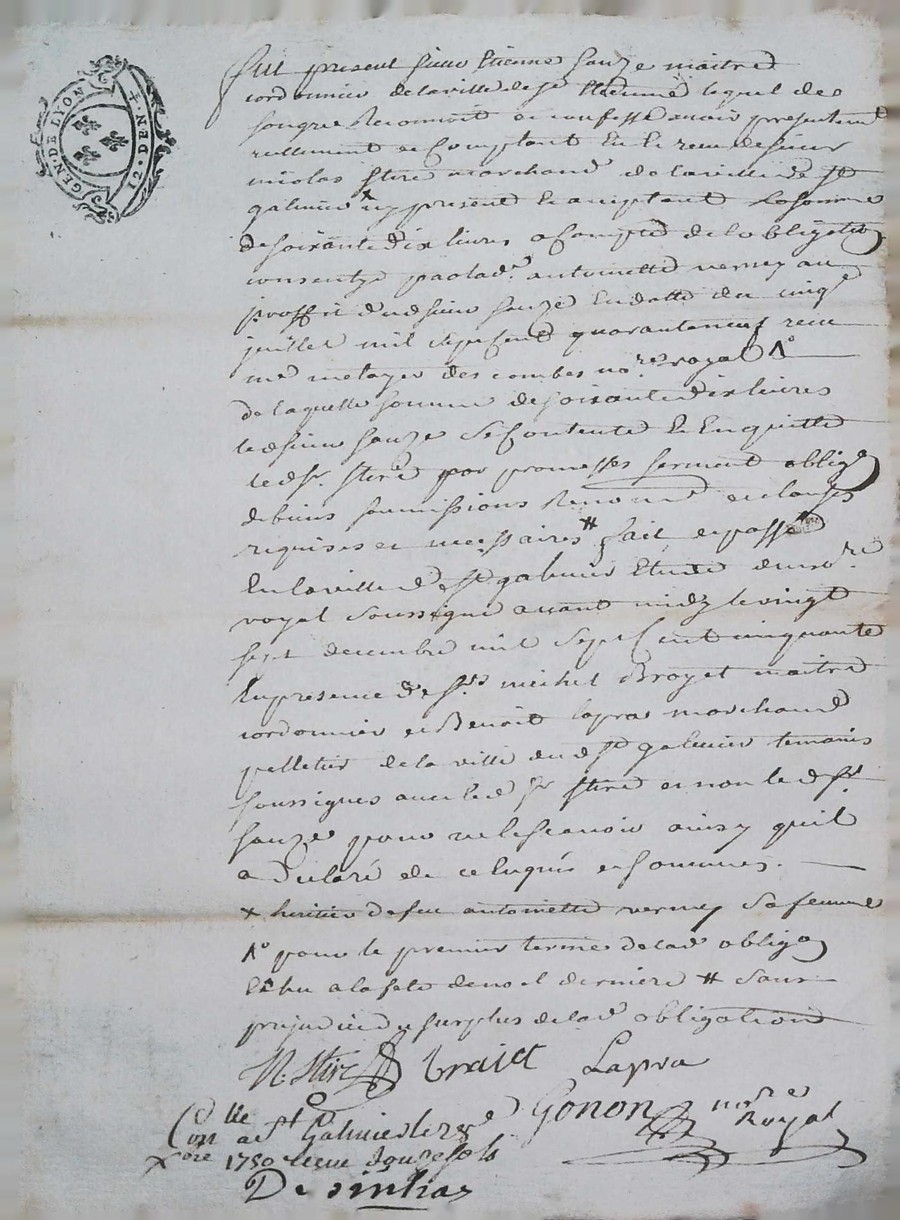 GEN. DE LYON
12. DEN.
fut present sieur Etienne Sauze maitre
cordonnier de la ville de St Etienne lequel de
son gré Reconnoit et confesse avoir presentem
réellement et Comptant Eu et receu de sieur
nicolas Stire marchand de la ville de St
galmier x icy present et acceptant La somme
de soixante dix livres a Compte de lobligation
consentye par lad. antoinette verney au
proffit dud sieur Sauze En datte du cinq
juillet mil sept Cent quarante neuf receu
me metayer des combes no.re royal Λ°
de laquelle somme de soixante dix livres
led sieur Sauze se Contente et En quitte
led sr. Stire par promesses serment obligaon
de biens soumissions Renon on et clauses
requises et necessaires # fait et passé
En la ville de St galmier Etude du no.re
royal soussigné avant midy le vingt
sept decembre mil sept Cent cinquante
En presence de srs michel Broyet maitre
cordonnier et Benoit lapra marchand
pelletier de la ville dud St galmier temoins
soussignes avec led sr Stire et non led sr
Sauze pour ne le scavoir ainsy quil
a declaré de ce Enquis et sommes.
x heritier de feu antoinette verney sa femme
Λ° pour le premier terme de lad obligaon
Echu a la fete de noel derniere # sans
prejudice du surplus de lad obligation
N. Stire Lapra
Gonon nore Royal
Con lle a St Galmier le
xbre 1750 receu douze sols